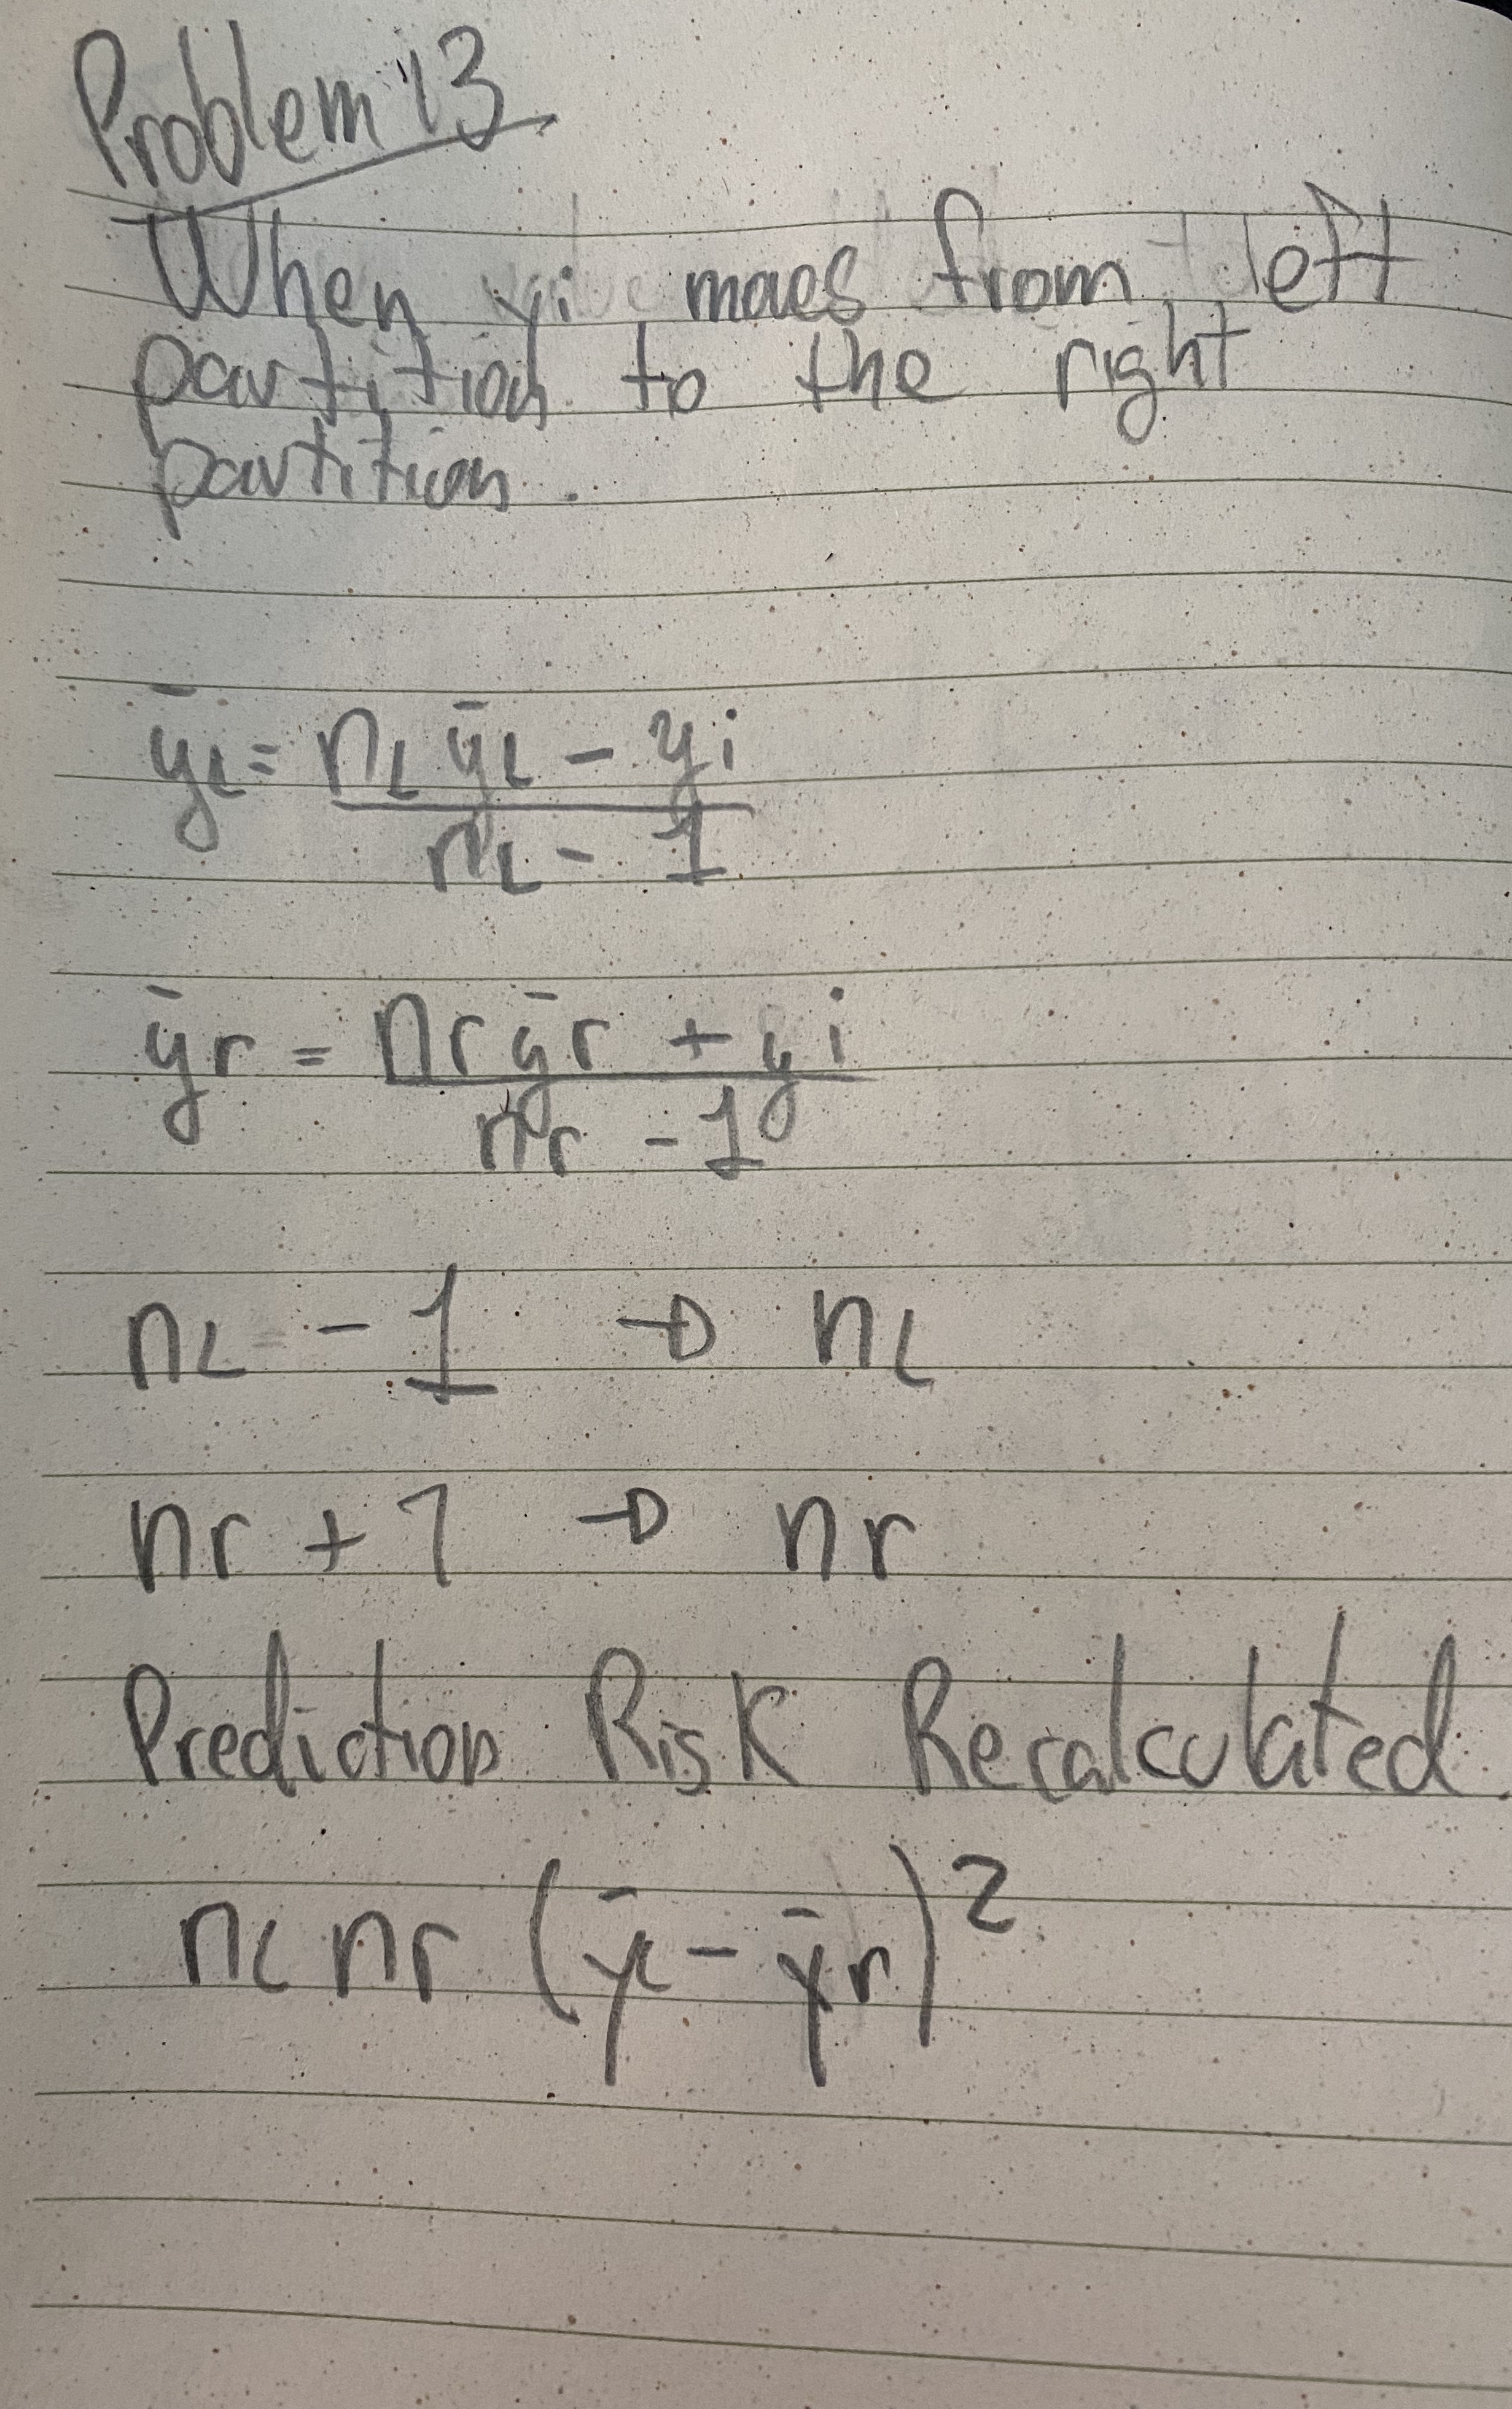 Problem 13
When yi moes from left
partition to the right
partition.
ȳL = nL ȳL - yi
nL - 1
ȳr = nr ȳr + yi
nr - 1
nL - 1 → nL
nr + 1 → nr
Prediction Risk Recalculated.
nL nr (ȳL - ȳr)²